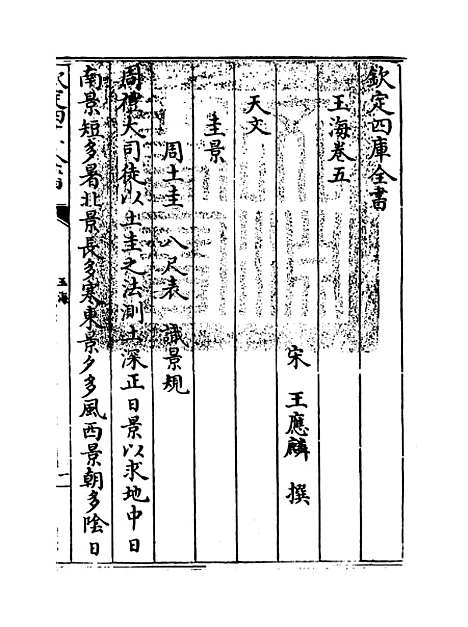 欽定四庫全書
玉海卷五
宋 王應麟 撰
天文
圭景
周土圭 八尺表 識景規
周禮大司徒以土圭之法測土深正日景以求地中日
南景短多暑北景長多寒東景夕多風西景朝多陰日
玉海
一